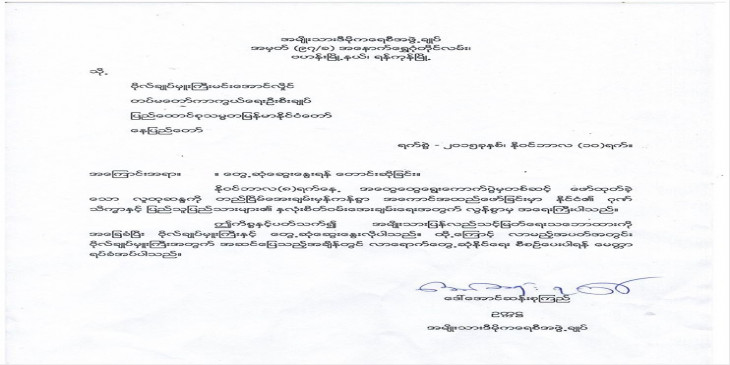 အမျိုးသားဒီမိုကရေစီအဖွဲ့ချုပ်
အမှတ် (၉၇/ခ) အနောက်ရွှေဂုံတိုင်လမ်း၊
ဗဟန်းမြို့နယ်၊ ရန်ကုန်မြို့
သို့
ဗိုလ်ချုပ်မှူးကြီးမင်းအောင်လှိုင်
တပ်မတော်ကာကွယ်ရေးဦးစီးချုပ်
ပြည်ထောင်စုသမ္မတမြန်မာနိုင်ငံတော်
နေပြည်တော်
ရက်စွဲ - ၂၀၁၅ခုနှစ်၊ နိုဝင်ဘာလ (၁၀)ရက်။
အကြောင်းအရာ။ ။ တွေ့ဆုံဆွေးနွေးရန် တောင်းဆိုခြင်း။
နိုဝင်ဘာလ(၈)ရက်နေ့ အထွေထွေရွေးကောက်ပွဲမှတစ်ဆင့် ဖော်ထုတ်ခဲ့
သော လူထုဆန္ဒကို တည်ငြိမ်အေးချမ်းမှန်ကန်စွာ အကောင်အထည်ဖော်ခြင်းမှာ နိုင်ငံ၏ ဂုဏ်
သိက္ခာနှင့် ပြည်သူပြည်သားများ၏ နှလုံးစိတ်ဝမ်းအေးချမ်းရေးအတွက် လွန်စွာမှ အရေးကြီးပါသည်။
ဤကိစ္စနှင့်ပတ်သက်၍ အမျိုးသားပြန်လည်သင့်မြတ်ရေးသဘောထားကို
အခြေခံပြီး ဗိုလ်ချုပ်မှူးကြီးနှင့် တွေ့ဆုံဆွေးနွေးလိုပါသည်။ ထို့ကြောင့် လာမည့်အပတ်အတွင်း
ဗိုလ်ချုပ်မှူးကြီးအတွက် အဆင်ပြေသည့်အချိန်တွင် လာရောက်တွေ့ဆုံနိုင်ရေး စီစဉ်ပေးပါရန် မေတ္တာ
ရပ်ခံအပ်ပါသည်။
ဒေါ်အောင်ဆန်းစုကြည်
ဥက္ကဋ္ဌ
အမျိုးသားဒီမိုကရေစီအဖွဲ့ချုပ်